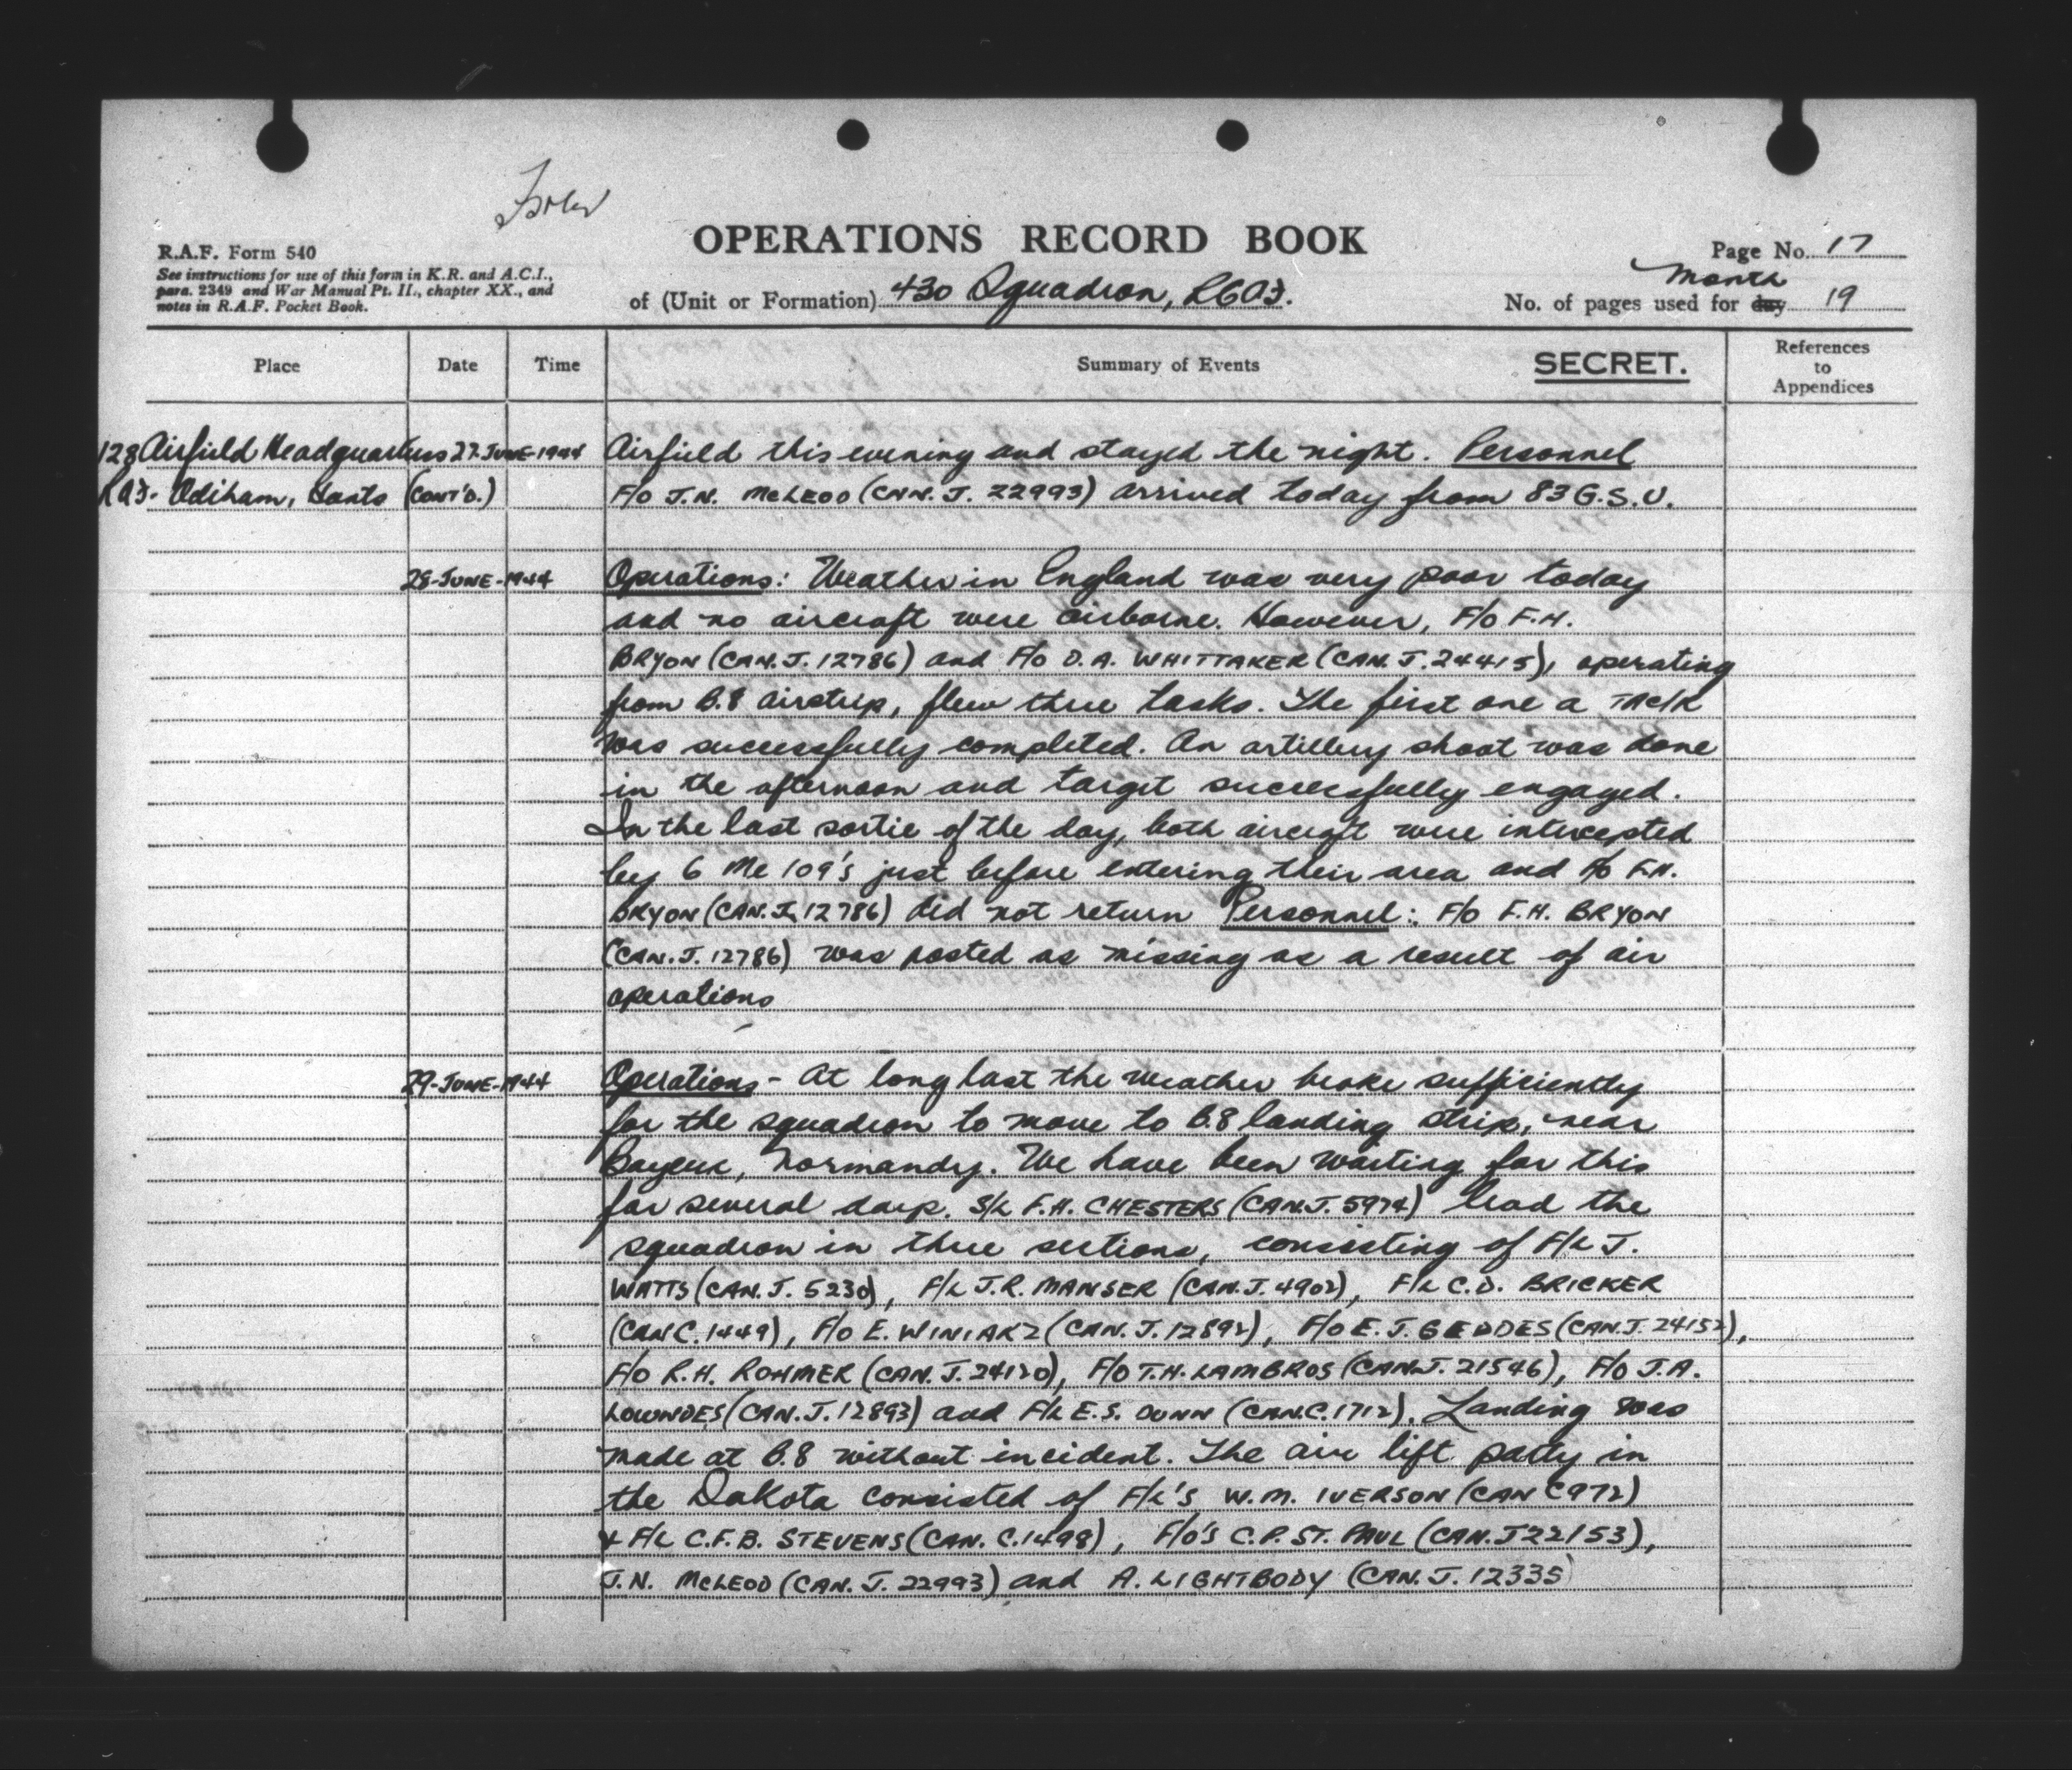 R.A.F. Form 540
See instructions for use of this form in K.R. and A.C.I.,
para. 2349 and War Manual Pt. II., chapter XX., and
notes in R.A.F. Pocket Book.
OPERATIONS RECORD BOOK
of (Unit or Formation) 430 Squadron, RCAF.
Page No. 17
month
No. of pages used for day 19
Place Date Time Summary of Events SECRET. References to Appendices
128 Airfield Headquarters 27-JUNE-1944 Airfield this evening and stayed the night. Personnel
RAF. Odiham, Hants (CONT'D.) F/O J.N. McLEOD (CAN. J. 22993) arrived today from 83 G.S.U.
28-JUNE-1944 Operations: Weather in England was very poor today
and no aircraft were airborne. However, F/O F.H.
BRYON (CAN. J. 12786) and F/O D.A. WHITTAKER (CAN. J. 24415), operating
from B.8 airstrip, flew three tasks. The first one a TAC/R
was successfully completed. An artillery shoot was done
in the afternoon and target successfully engaged.
In the last sortie of the day, both aircraft were intercepted
by 6 Me 109's just before entering their area and F/O F.H.
BRYON (CAN. J. 12786) did not return Personnel: F/O F.H. BRYON
(CAN. J. 12786) was posted as missing as a result of air
operations
29-JUNE-1944 Operations - At long last the weather broke sufficiently
for the squadron to move to B.8 landing strip, near
Bayeux, Normandy. We have been waiting for this
for several days. S/L F.H. CHESTERS (CAN. J. 5974) lead the
squadron in three sections, consisting of F/L J.
WATTS (CAN. J. 5230), F/L J.R. MANSER (CAN. J. 4902), F/L C.D. BRICKER
(CAN C. 1449), F/O E. WINIARZ (CAN. J. 12892), F/O E.J. GEDDES (CAN. J. 24152),
F/O R.H. ROHMER (CAN. J. 24120), F/O T.H. LAMBROS (CAN J. 21546), F/O J.A.
LOWNDES (CAN. J. 12893) and F/L E.S. DUNN (CAN.C. 1712). Landing was
made at B.8 without incident. The air lift party in
the Dakota consisted of F/L's W.M. IVERSON (CAN C972)
& F/L C.F.B. STEVENS (CAN. C. 1498), F/O'S C.P. ST. PAUL (CAN. J 22153),
J.N. McLEOD (CAN. J. 22993) and A. LIGHTBODY (CAN. J. 12335)